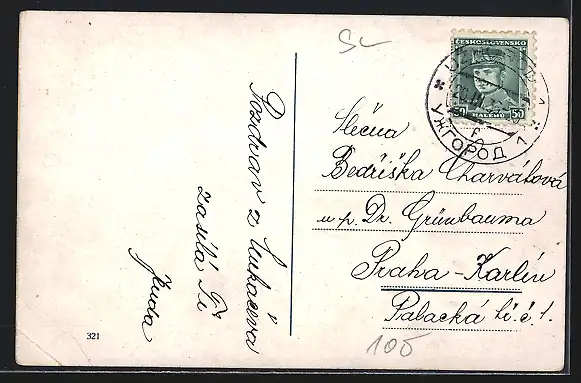 Pozdrav z Mukačeva
zasílá Ti
Jenda
321
SL
ČESKOSLOVENSKO
50 HALÉŘŮ 50
УЖГОРОД 1
Slečna
Bedřiška Charvátová
u p. Dr. Grünbauma
Praha-Karlín
Palacká tř. č. 1.
105